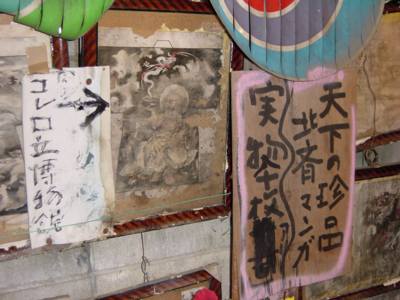 天下の珍品
北斎マンガ
実物
コレロ立博物館